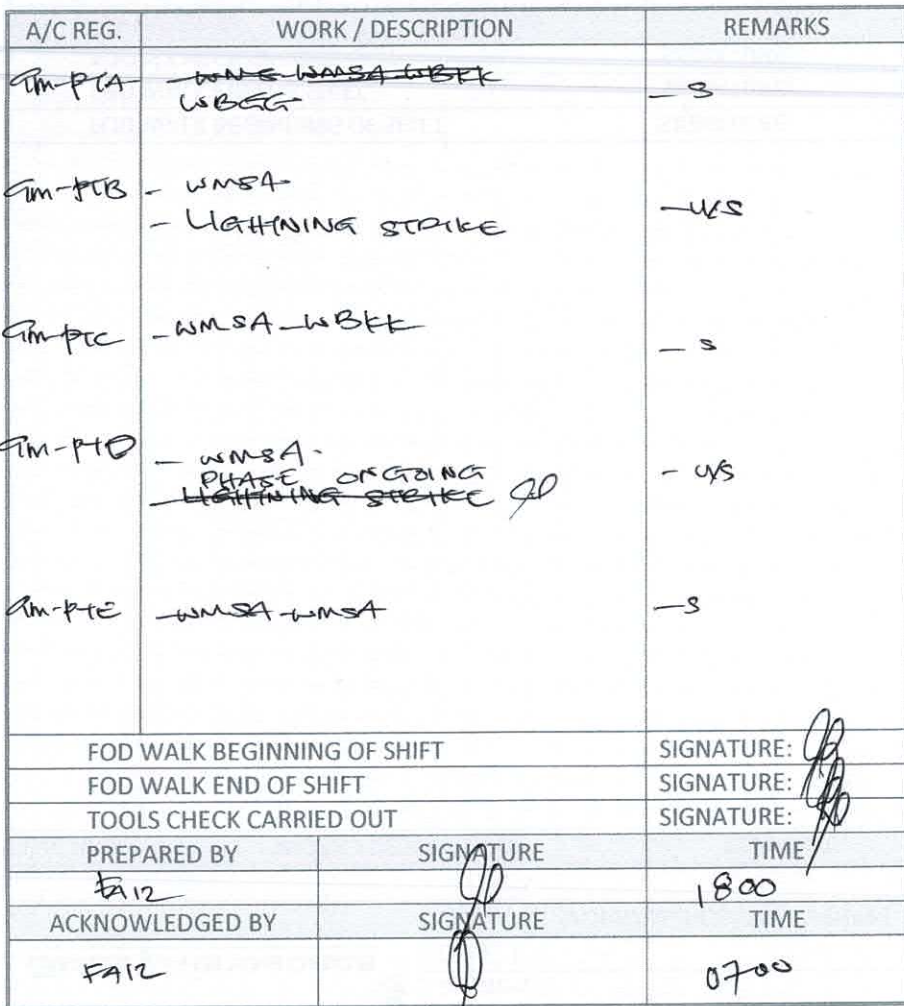 A/C REG. WORK / DESCRIPTION REMARKS
9M-PTA - WMSA-WBKK - S
WBGG
9M-PTB - WMSA - U/S
- LIGHTNING STRIKE
9M-PTC - WMSA - WBKK - S
9M-PTD - WMSA - U/S
PHASE ONGOING
- LIGHTNING STRIKE
9M-PTE - WMSA - WMSA - S
FOD WALK BEGINNING OF SHIFT SIGNATURE:
FOD WALK END OF SHIFT SIGNATURE:
TOOLS CHECK CARRIED OUT SIGNATURE:
PREPARED BY SIGNATURE TIME
FAIZ 1800
ACKNOWLEDGED BY SIGNATURE TIME
FAIZ 0700